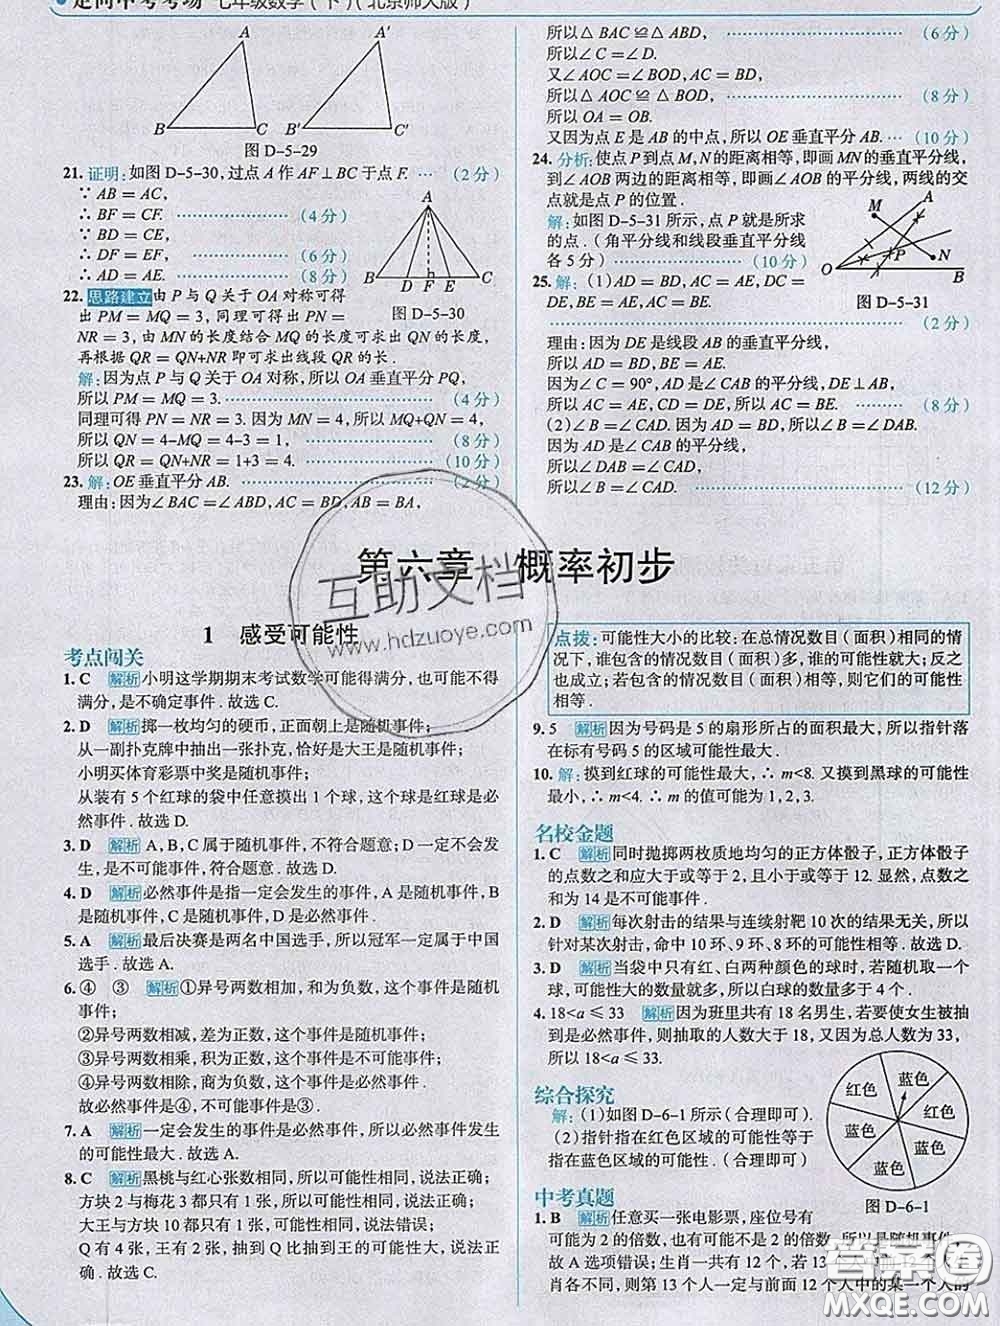 走向中考考场 七年级数学(下)(北京师大版)
A
A′
B
C
B′
C′
图 D-5-29
21.证明:如图 D-5-30,过点 A 作 AF⊥BC 于点 F. (2分)
∵ AB = AC,
∴ BF = CF. (4分)
∵ BD = CE,
∴ DF = EF, (6分)
∴ AD = AE. (8分)
A
B
D F E
C
图 D-5-30
22.思路建立 由 P 与 Q 关于 OA 对称可得
出 PM = MQ = 3,同理可得出 PN =
NR = 3,由 MN 的长度结合 MQ 的长度可求出 QN 的长度,
再根据 QR = QN+NR 即可求出线段 QR 的长.
解:因为点 P 与 Q 关于 OA 对称,所以 OA 垂直平分 PQ,
所以 PM = MQ = 3. (4分)
同理可得 PN = NR = 3. 因为 MN = 4,所以 MQ+QN = 4,
所以 QN = 4-MQ = 4-3 = 1, (8分)
所以 QR = QN+NR = 1+3 = 4. (10分)
23.解:OE 垂直平分 AB. (2分)
理由:因为∠BAC=∠ABD,AC = BD,AB = BA,
所以△BAC≌△ABD, (6分)
所以∠C =∠D.
又∠AOC =∠BOD,AC = BD,
所以△AOC≌△BOD, (8分)
所以 OA = OB.
又因为点 E 是 AB 的中点,所以 OE 垂直平分 AB. (10分)
24.分析:使点 P 到点 M,N 的距离相等,即画 MN 的垂直平分线,
到∠AOB 两边的距离相等,即画∠AOB 的平分线,两线的交
点就是点 P 的位置.
解:如图 D-5-31 所示,点 P 就是所求
的点.(角平分线和线段垂直平分线
各 5 分) (10分)
M
A
P
N
O
B
图 D-5-31
25.解:(1)AD = BD,AC = AE,DC =
DE,AC = BE,AE = BE.
(2分)
理由:因为 DE 是线段 AB 的垂直平分线,
所以 AD = BD,BE = AE.
因为∠C = 90°,AD 是∠CAB 的平分线,DE⊥AB,
所以 AC = AE,CD = DE,所以 AC = BE. (8分)
(2)∠B =∠CAD. 因为 AD = BD,所以∠B=∠DAB.
因为 AD 是∠CAB 的平分线,
所以∠DAB =∠CAD,
所以∠B =∠CAD. (12分)
第六章 概率初步
1 感受可能性
考点闯关
1. C 解析 小明这学期期末考试数学可能得满分,也可能不得
满分,是不确定事件. 故选 C.
2. D 解析 掷一枚均匀的硬币,正面朝上是随机事件;
从一副扑克牌中抽出一张扑克,恰好是大王是随机事件;
小明买体育彩票中奖是随机事件;
从装有 5 个红球的袋中任意摸出 1 个球,这个球是红球是必
然事件. 故选 D.
3. D 解析 A,B,C 属于随机事件,不符合题意;D 一定不会发
生,是不可能事件,符合题意. 故选 D.
4. D 解析 必然事件是指一定会发生的事件,A 是随机事件,B
是随机事件,C 是随机事件,D 是必然事件.
5. A 解析 最后决赛是两名中国选手,所以冠军一定属于中国
选手. 故选 A.
6. ④ ③ 解析 ①异号两数相加,和为负数,这个事件是随机
事件;
②异号两数相减,差为正数,这个事件是随机事件;
③异号两数相乘,积为正数,这个事件是不可能事件;
④异号两数相除,商为负数,这个事件是必然事件.
必然事件是④,不可能事件是③.
7. A 解析 一定会发生的事件是必然事件,所以必然事件发生
的可能性最大. 故选 A.
8. C 解析 黑桃与红心张数相同,所以可能性相同,说法正确;
方块 2 与梅花 3 都只有 1 张,所以可能性相同,说法正确;
大王与方块 10 都只有 1 张,可能性相同,说法错误;
Q 有 4 张,王有 2 张,抽到 Q 比抽到王的可能性大,说法正
确. 故选 C.
点拨:可能性大小的比较:在总情况数目(面积)相同的情
况下,谁包含的情况数目(面积)多,谁的可能性就大;反之
也成立;若包含的情况数目(面积)相等,则它们的可能性
相等.
9. 5 解析 因为号码是 5 的扇形所占的面积最大,所以指针落
在标有号码 5 的区域可能性最大.
10. 解:摸到红球的可能性最大,∴ m<8. 又摸到黑球的可能性
最小,∴ m<4. ∴ m 的值可能为 1,2,3.
名校金题
1. C 解析 同时抛掷两枚质地均匀的正方体骰子,正方体骰子
的点数之和应大于或等于 2,且小于或等于 12. 显然,点数之
和为 14 是不可能事件.
2. D 解析 每次射击的结果与连续射靶 10 次的结果无关,所以
针对某次射击,命中 10 环、9 环、8 环的可能性相等. 故选 D.
3. D 解析 当袋中只有红、白两种颜色的球时,若随机取一个
球,可能性大的数量就多,所以白球的数量多于 4 个.
4. 18<a≤33 解析 因为班里共有 18 名男生,若要使女生被抽
到是必然事件,则抽取的人数大于 18,又因为总人数为 33,
所以 18<a≤33.
综合探究
解:(1)如图 D-6-1 所示(合理即可).
(2)指针指在红色区域的可能性等于
指在蓝色区域的可能性.(合理即可)
红色
蓝色
蓝色
红色
蓝色
蓝色
蓝色
图 D-6-1
中考真题
1. B 解析 任意买一张电影票,座位号有
可能为 2 的倍数,也有可能不是 2 的倍数,所以是随机事件,
故 A 选项错误;生肖共有 12 个,若 13 个人
肖各不同,则第 13 个人一定与前面 12 个人中的某一个人的
互助文档
www.hdzuoye.com
答案圈
MXQE.COM